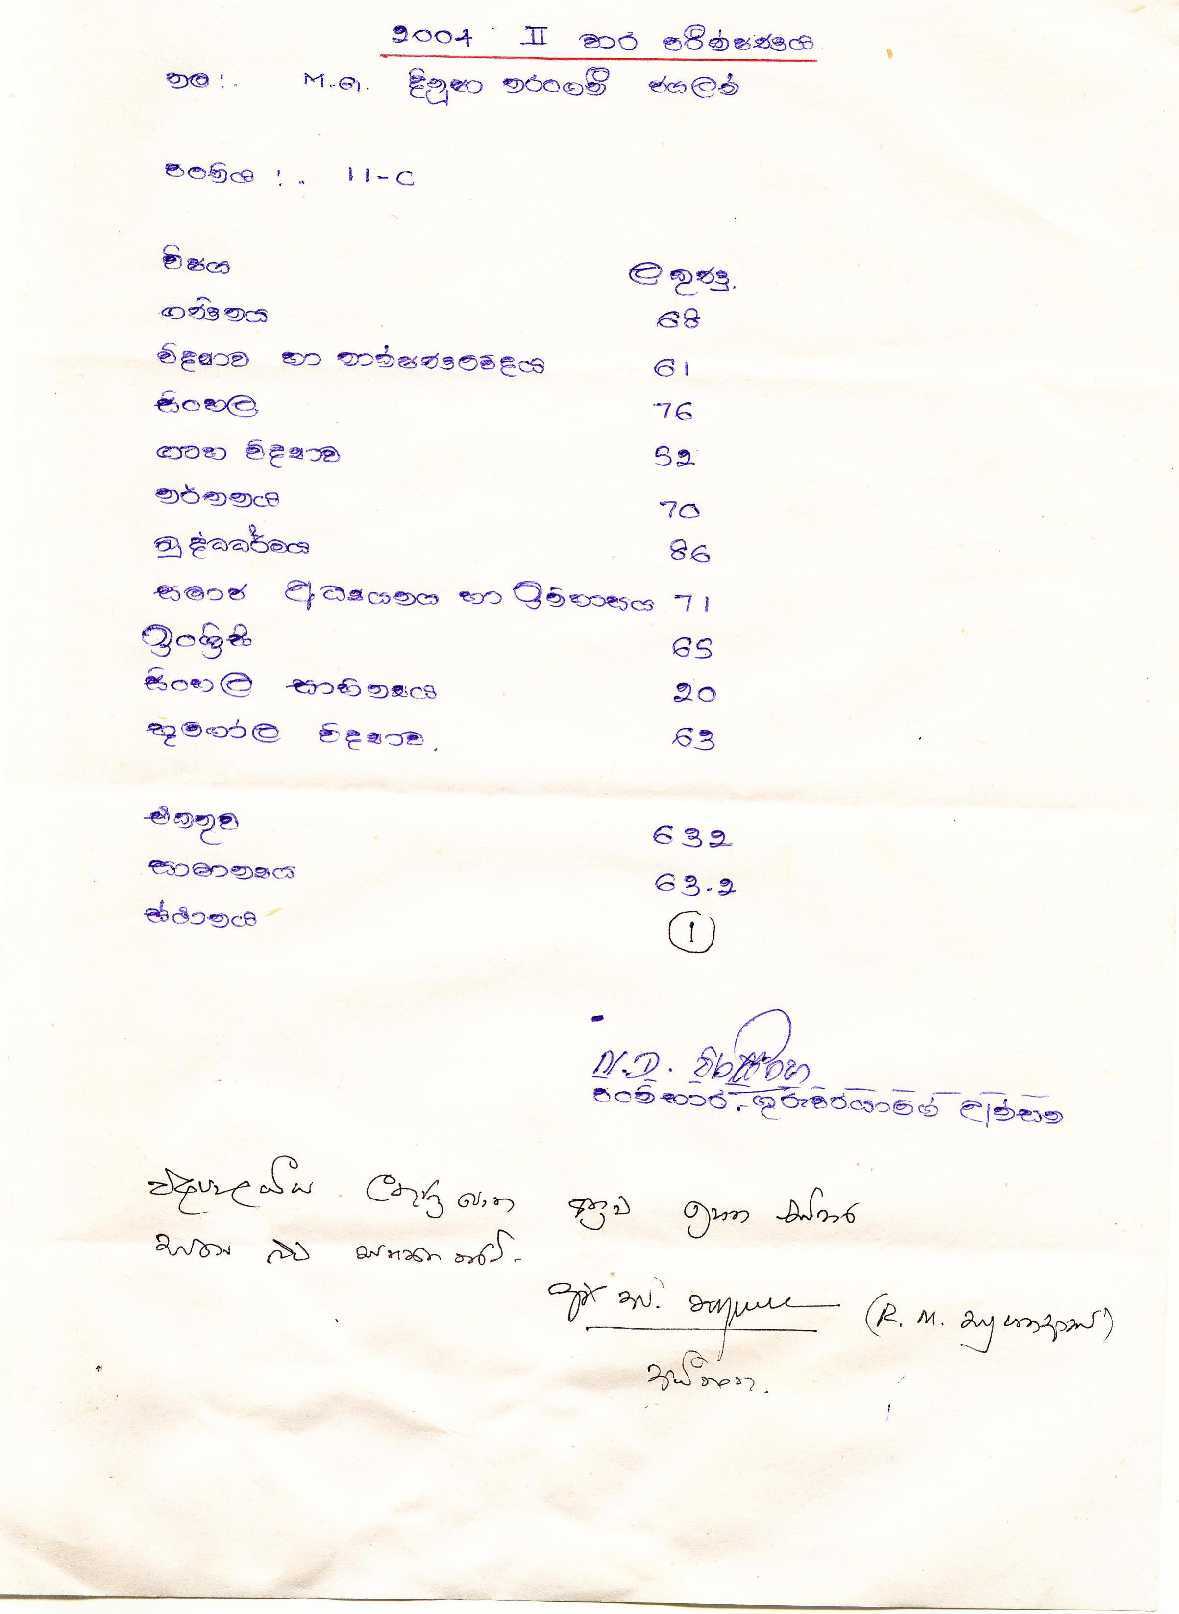 2004 II වාර පරීක්ෂණය
නම :. M.G. දිනූෂා තරංගනී ජගලත්
පංතිය :. 11-C
විෂය ලකුණු.
ගණිතය 68
විද්‍යාව හා තාක්ෂණවේදය 61
සිංහල 76
ගෘහ විද්‍යාව 52
නර්තනය 70
බුද්ධධර්මය 86
සමාජ අධ්‍යයනය හා ඉතිහාසය 71
ඉංග්‍රීසි 65
සිංහල සාහිත්‍යය 20
භූගෝල විද්‍යාව. 63
එකතුව 632
සාමාන්‍යය 63.2
ස්ථානය 1
N.D. වීරසිංහ
පංතිභාර ගුරුවරයාගේ අත්සන
ලකුණු ඉහත
බව සහතික කරමි.
(R. M.